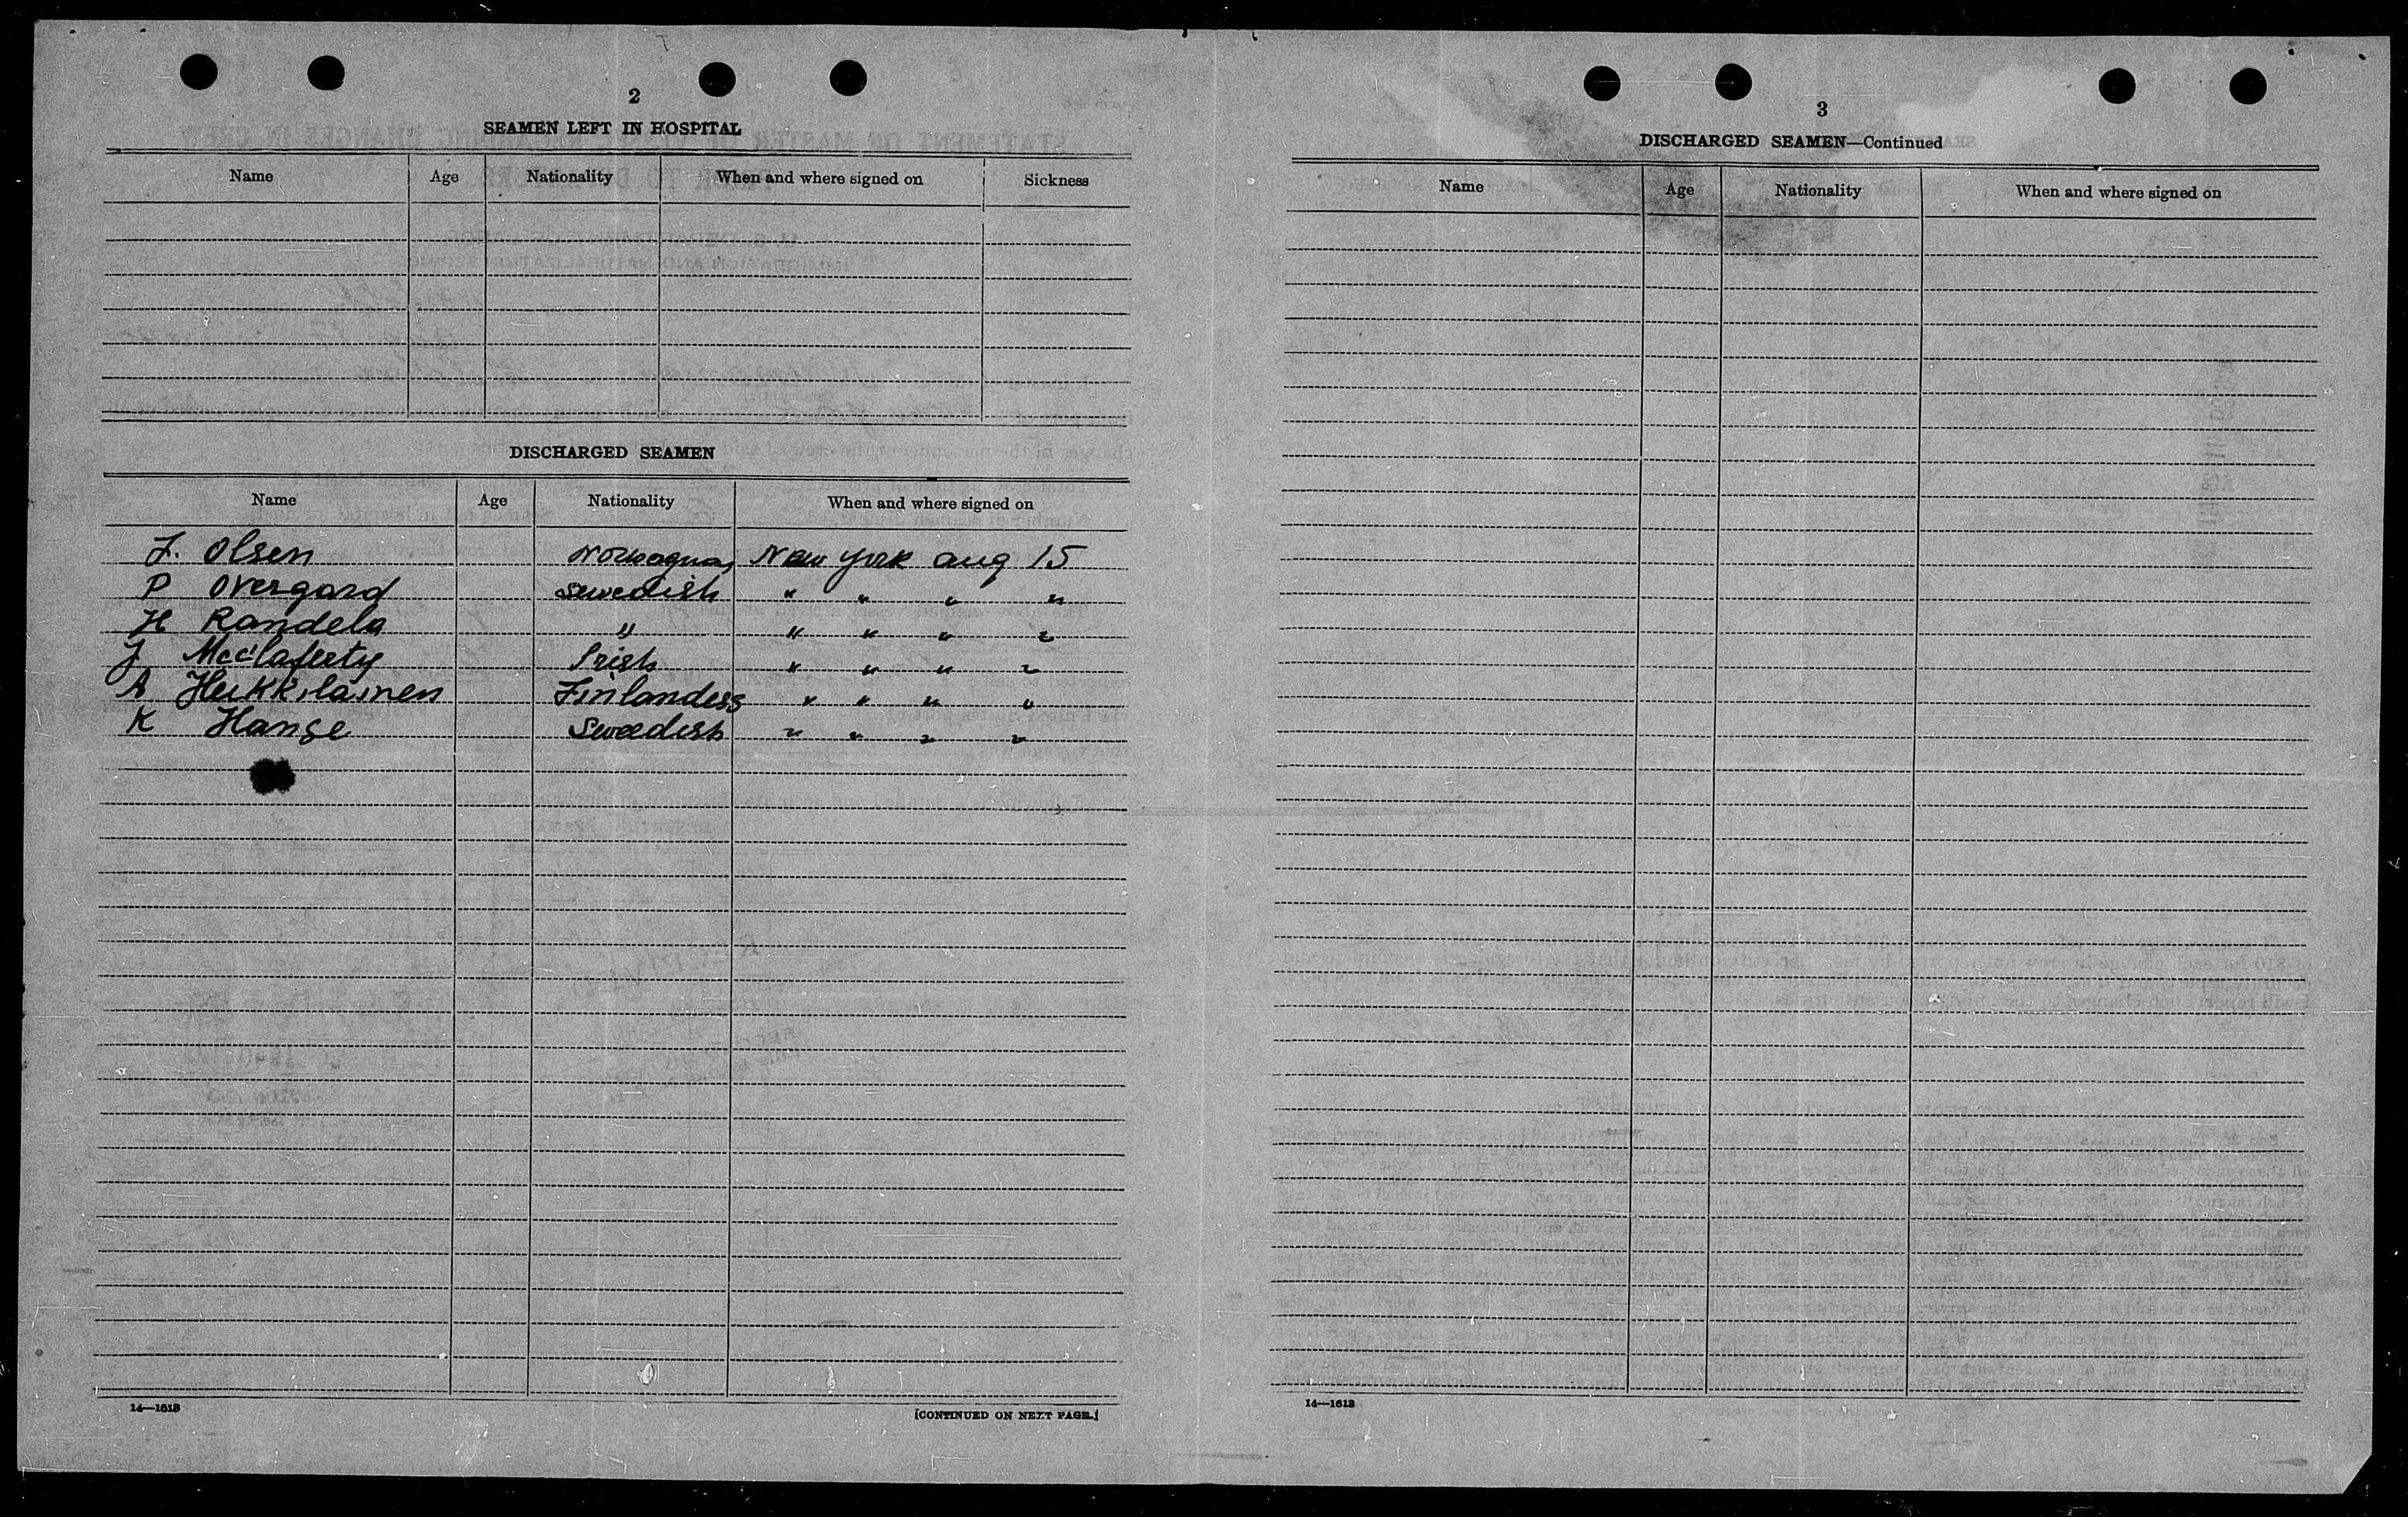 2
SEAMEN LEFT IN HOSPITAL
Name Age Nationality When and where signed on Sickness
DISCHARGED SEAMEN
Name Age Nationality When and where signed on
J. Olsen New York aug 15
P Overgard Swedish " " " "
H Randela " " " " "
J McClaferty Irish " " " "
A Heikkilainen Finlandess " " " "
K Hanse Swedish " " " "
14—1613
[CONTINUED ON NEXT PAGE.]
3
DISCHARGED SEAMEN—Continued
Name Age Nationality When and where signed on
14—1613